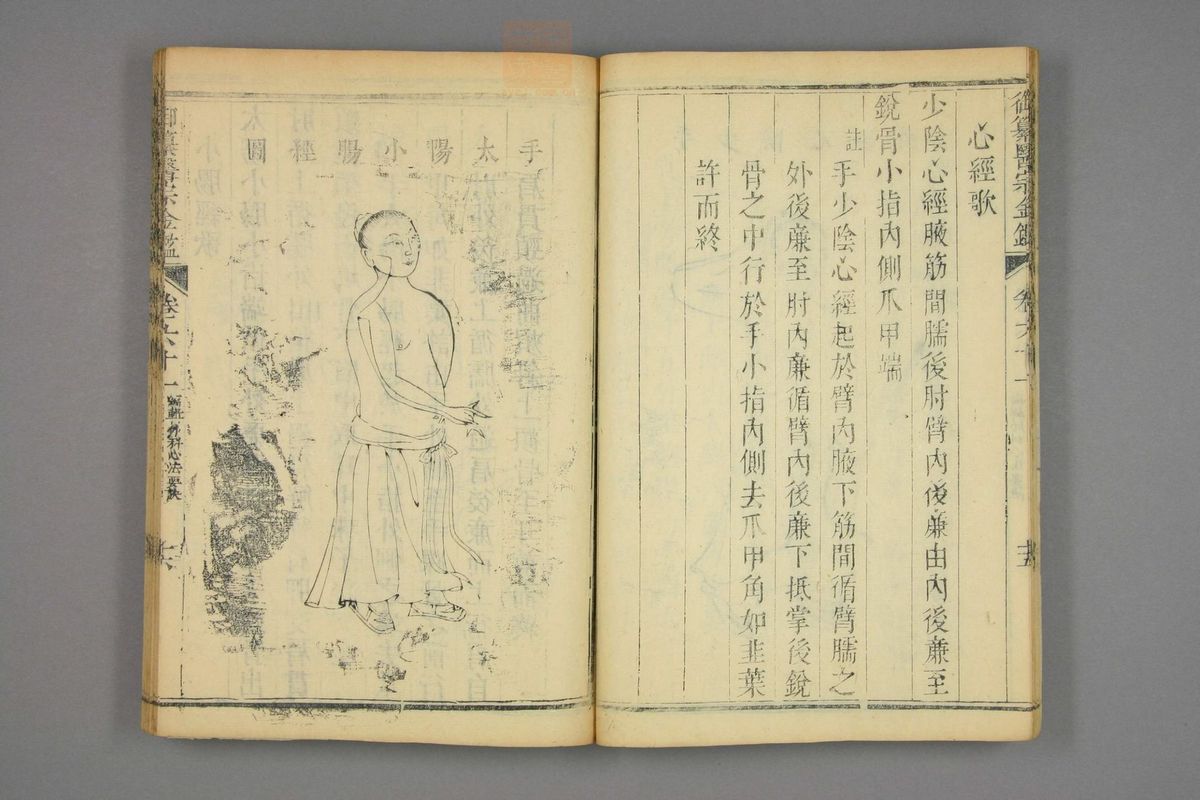 御纂醫宗金鑑
卷六十一
十五
心經歌
少陰心經腋筋間臑後肘臂內後亷由內後亷至
銳骨小指內側爪甲端
註
手少陰心經起於臂內腋下筋間循臂臑之
外後亷至肘內亷循臂內後亷下抵掌後銳
骨之中行於手小指內側去爪甲角如韭葉
許而終
手
太
陽
小
腸
經
圖
御纂醫宗金鑑
卷六十一
編輯外科心法要訣
十六